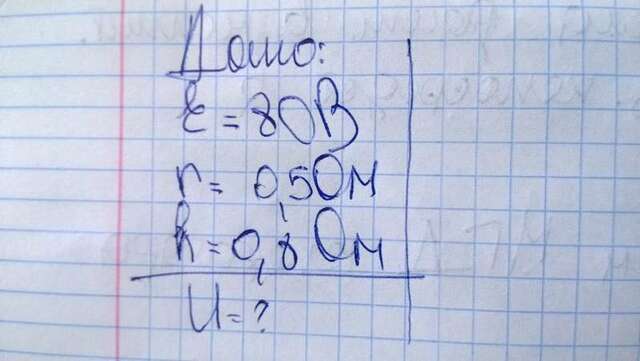 Дано:
ε = 80В
r = 0,5Ом
R = 0,8Ом
U = ?